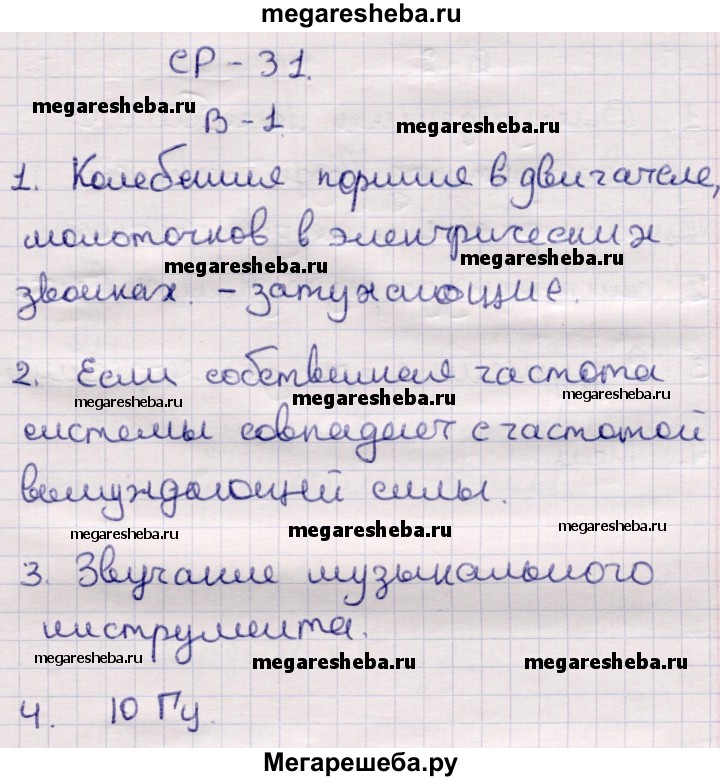 megaresheba.ru
СР - 31.
megaresheba.ru
В - 1
megaresheba.ru
1. Колебания поршня в двигателе,
молоточков в электрических
megaresheba.ru
megaresheba.ru
звонках. - затухающие.
2. Если собственная частота
megaresheba.ru
megaresheba.ru
megaresheba.ru
системы совпадает с частотой
вынуждающей силы.
megaresheba.ru
megaresheba.ru
megaresheba.ru
3. Звучание музыкального
инструмента.
megaresheba.ru
megaresheba.ru
megaresheba.ru
4. 10 Гц.
Мегарешеба.ру